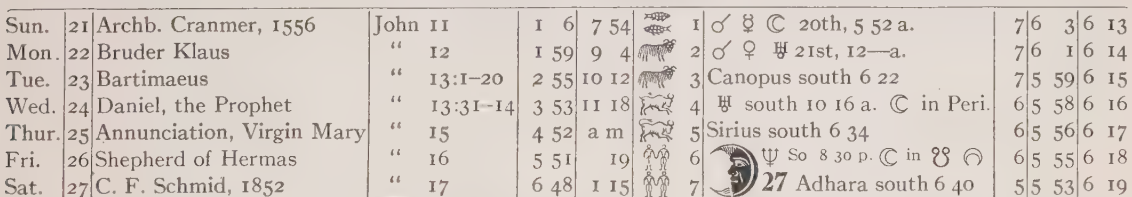 Sun. 21 Archb. Cranmer, 1556 John 11 1 6 7 54 1 ☌ ☿ ☾ 20th, 5 52 a. 7 6 3 6 13
Mon. 22 Bruder Klaus " 12 1 59 9 4 2 ☌ ♀ ♅ 21st, 12—a. 7 6 1 6 14
Tue. 23 Bartimaeus " 13:1-20 2 55 10 12 3 Canopus south 6 22 7 5 59 6 15
Wed. 24 Daniel, the Prophet " 13:31-14 3 53 11 18 4 ♅ south 10 16 a. ☾ in Peri. 6 5 58 6 16
Thur. 25 Annunciation, Virgin Mary " 15 4 52 a m 5 Sirius south 6 34 6 5 56 6 17
Fri. 26 Shepherd of Hermas " 16 5 51 19 6 ♆ So 8 30 p. ☾ in ☋ 6 5 55 6 18
Sat. 27 C. F. Schmid, 1852 " 17 6 48 1 15 7 27 Adhara south 6 40 5 5 53 6 19